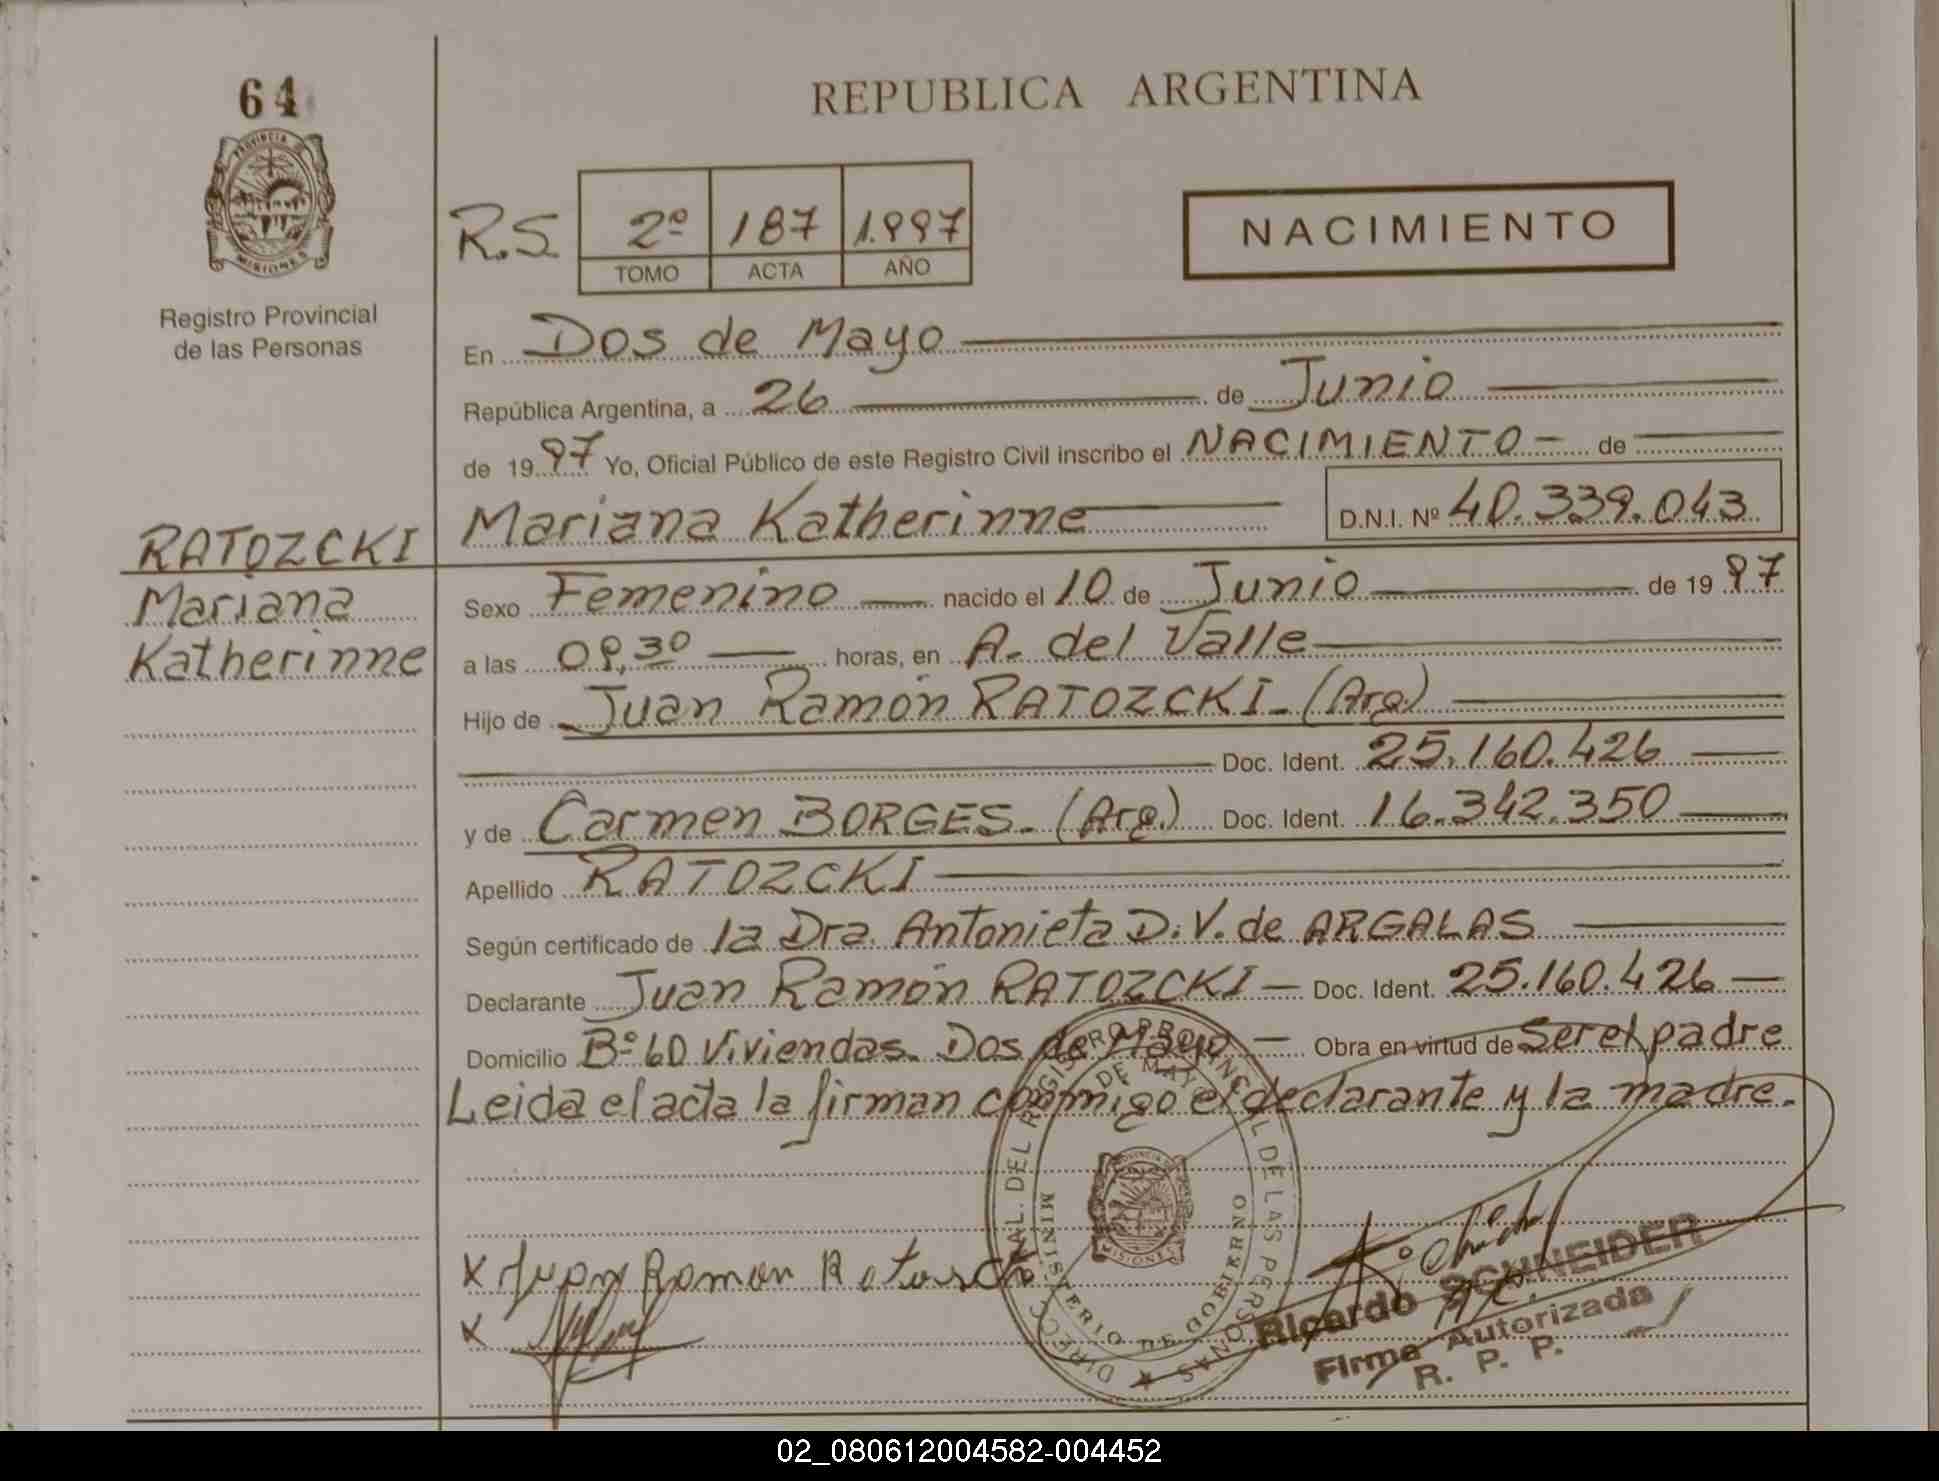 64
PROVINCIA DE
MISIONES
Registro Provincial
de las Personas
RATOZCKI
Mariana
Katherinne
REPUBLICA ARGENTINA
R.S. 2º 187 1.997
TOMO ACTA AÑO
NACIMIENTO
En Dos de Mayo
República Argentina, a 26 de Junio
de 1997 Yo, Oficial Público de este Registro Civil inscribo el NACIMIENTO - de
Mariana Katherinne D.N.I. Nº 40.339.043
Sexo Femenino nacido el 10 de Junio de 1997
a las 09,30 horas, en A. del Valle
Hijo de Juan Ramón RATOZCKI - (Arg.)
Doc. Ident. 25.160.426
y de Carmen BORGES - (Arg.) Doc. Ident. 16.342.350
Apellido RATOZCKI
Según certificado de la Dra. Antonieta D.V. de ARGALAS
Declarante Juan Ramón RATOZCKI - Doc. Ident. 25.160.426
Domicilio Bº 60 Viviendas. Dos de Mayo - Obra en virtud de Ser el padre
Leida el acta la firman conmigo el declarante y la madre.
DIRECC. GRAL. DEL REGISTRO PROVINCIAL DE LAS PERSONAS
MINISTERIO DE GOBIERNO
DOS DE MAYO
PROVINCIA DE
MISIONES
x Juan Ramon
x
Ricardo SCHNEIDER
Firma Autorizada
R. P. P.
02_080612004582-004452